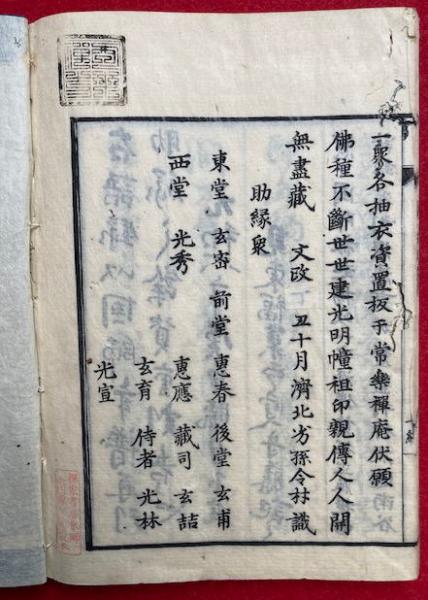 一衆各抽衣資置板于常樂禪庵伏願
佛種不斷世世建光明幢祖印親傳人人開
無盡藏 文政 丑十月濟北劣孫令材識
助縁衆
東堂 玄密 前堂 惠春 後堂 玄甫
西堂 光秀 惠應 藏司 玄喆
玄育 侍者 光林
光宣